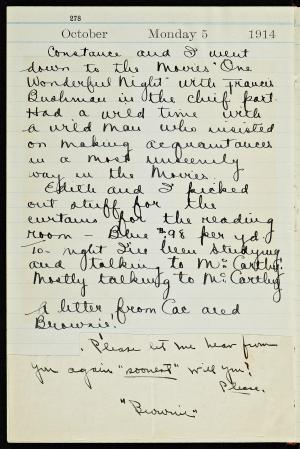 278
October Monday 5 1914
Constance and I went
down to the Movies "One
Wonderful Night" with Francis
Bushman in the chief part.
Had a wild time with
a wild man who insisted
on making acquaintances
in a most unseemly
way in the Movies.
Edith and I picked
out stuff for the
curtains for the reading
room – Blue .98 per yd.
To-night I've been studying
and talking to McCarthy!
Mostly talking to McCarthy
A letter from Cac and
Brownie!
Please let me hear from
you again "soonest" will you?
Please.
"Brownie"